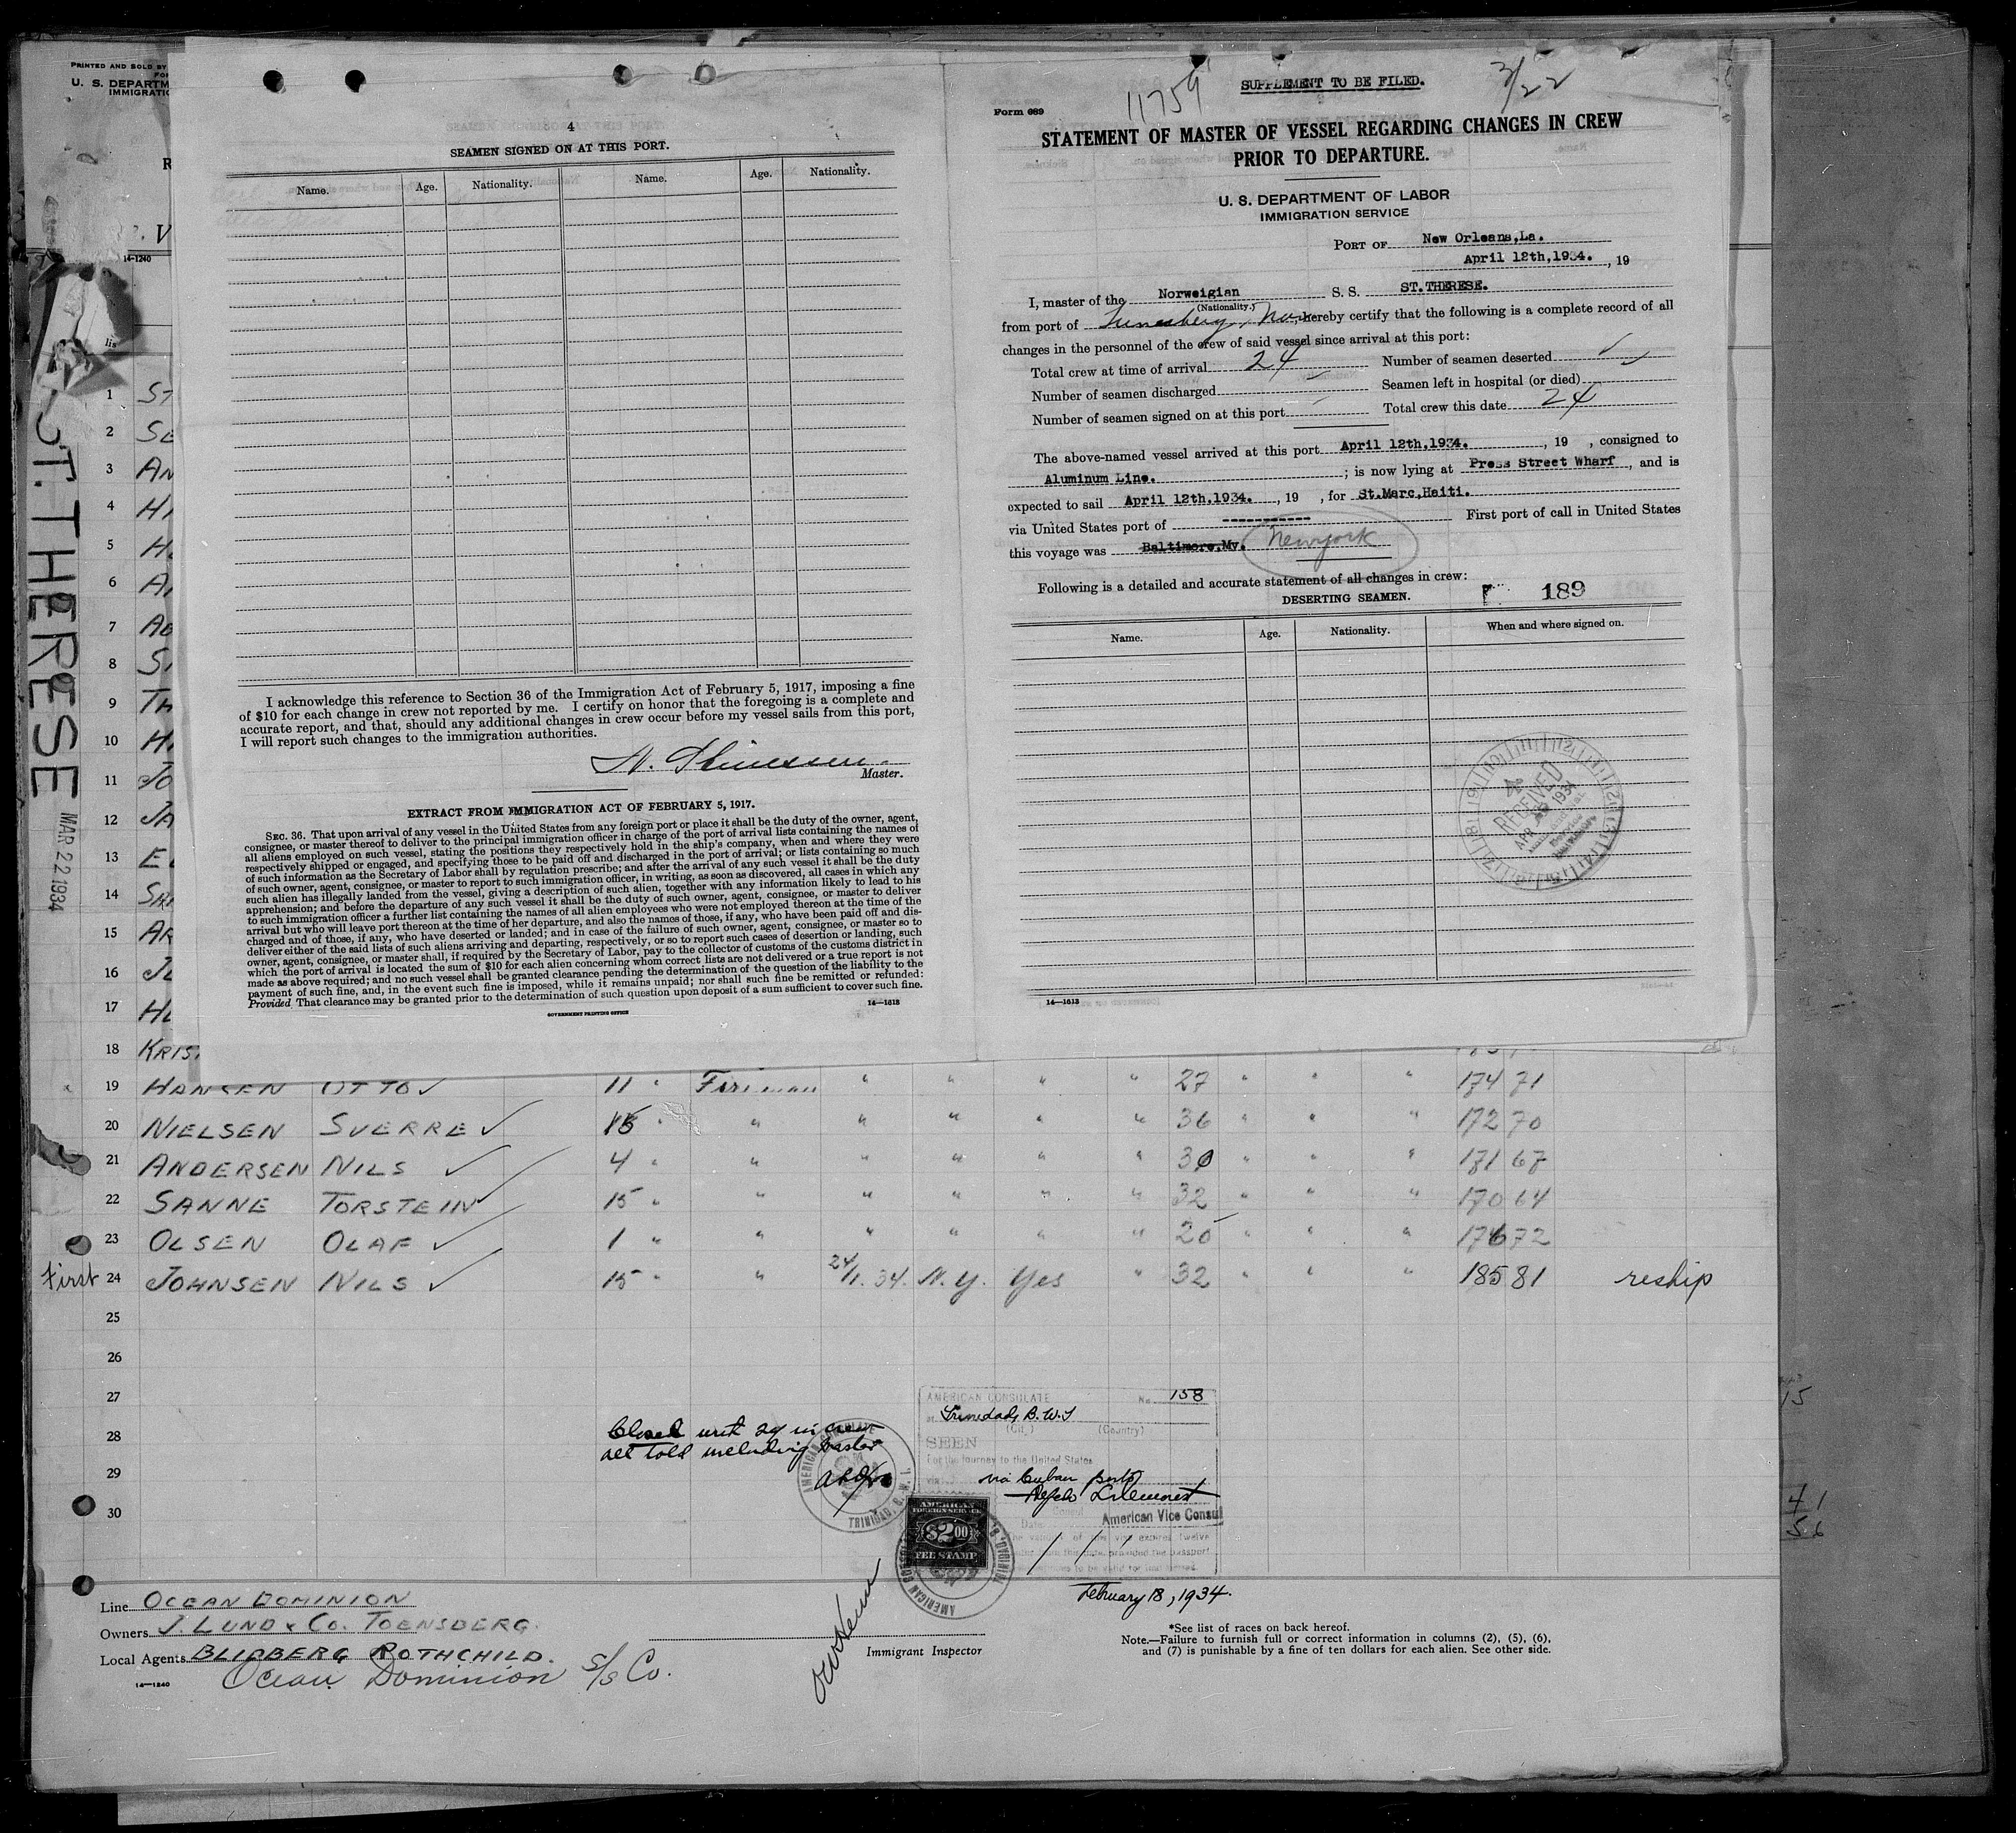 PRINTED AND SOLD BY
U. S. DEPARTM
IMMIGRATIO
14-1240
lis
ST. THERESE MAR 22 1934
4
SEAMEN SIGNED ON AT THIS PORT.
Name. Age. Nationality. Name. Age. Nationality.
I acknowledge this reference to Section 36 of the Immigration Act of February 5, 1917, imposing a fine
of $10 for each change in crew not reported by me. I certify on honor that the foregoing is a complete and
accurate report, and that, should any additional changes in crew occur before my vessel sails from this port,
I will report such changes to the immigration authorities.
Master.
EXTRACT FROM IMMIGRATION ACT OF FEBRUARY 5, 1917.
SEC. 36. That upon arrival of any vessel in the United States from any foreign port or place it shall be the duty of the owner, agent,
consignee, or master thereof to deliver to the principal immigration officer in charge of the port of arrival lists containing the names of
all aliens employed on such vessel, stating the positions they respectively hold in the ship's company, when and where they were
respectively shipped or engaged, and specifying those to be paid off and discharged in the port of arrival; or lists containing so much
of such information as the Secretary of Labor shall by regulation prescribe; and after the arrival of any such vessel it shall be the duty
of such owner, agent, consignee, or master to report to such immigration officer, in writing, as soon as discovered, all cases in which any
such alien has illegally landed from the vessel, giving a description of such alien, together with any information likely to lead to his
apprehension; and before the departure of any such vessel it shall be the duty of such owner, agent, consignee, or master to deliver
to such immigration officer a further list containing the names of all alien employees who were not employed thereon at the time of the
arrival but who will leave port thereon at the time of her departure, and also the names of those, if any, who have been paid off and dis-
charged and of those, if any, who have deserted or landed; and in case of the failure of such owner, agent, consignee, or master so to
deliver either of the said lists of such aliens arriving and departing, respectively, or so to report such cases of desertion or landing, such
owner, agent, consignee, or master shall, if required by the Secretary of Labor, pay to the collector of customs of the customs district in
which the port of arrival is located the sum of $10 for each alien concerning whom correct lists are not delivered or a true report is not
made as above required; and no such vessel shall be granted clearance pending the determination of the question of the liability to the
payment of such fine, and, in the event such fine is imposed, while it remains unpaid; nor shall such fine be remitted or refunded:
Provided That clearance may be granted prior to the determination of such question upon deposit of a sum sufficient to cover such fine.
GOVERNMENT PRINTING OFFICE 14—1613
11759 SUPPLEMENT TO BE FILED. 3/22
Form 689
STATEMENT OF MASTER OF VESSEL REGARDING CHANGES IN CREW
PRIOR TO DEPARTURE.
U. S. DEPARTMENT OF LABOR
IMMIGRATION SERVICE
PORT OF New Orleans,La.
April 12th,1934. , 19
I, master of the Norweigian S. S. ST.THERESE.
(Nationality.)
from port of hereby certify that the following is a complete record of all
changes in the personnel of the crew of said vessel since arrival at this port:
Total crew at time of arrival 24 Number of seamen deserted
Number of seamen discharged Seamen left in hospital (or died)
Number of seamen signed on at this port Total crew this date 24
The above-named vessel arrived at this port April 12th,1934. , 19 , consigned to
Aluminum Line. ; is now lying at Press Street Wharf , and is
expected to sail April 12th.1934. , 19 , for St.Marc,Haiti.
via United States port of ----------- First port of call in United States
this voyage was Baltimore,Mv. Newyork
Following is a detailed and accurate statement of all changes in crew:
DESERTING SEAMEN. 189
Name. Age. Nationality. When and where signed on.
RECEIVED
APR 1934
14—1613
1 ST
2 SE
3 AN
4 HA
5 H
6 A
7 AD
8 S
9 TH
10 H
11 JO
12 JA
13 E
14 S
15 AR
16 J
17 H
18 KRIS
19 HANSEN OTTO ✓ 11 " Fireman " " " " 27 " " " 174 71
20 NIELSEN SVERRE ✓ " " " " " " 36 " " " 172 70
21 ANDERSEN NILS ✓ 4 " " " " " " 30 " " " 171 67
22 SANNE TORSTEIN ✓ 15 " " " " " " 32 " " " 170 64
23 OLSEN OLAF ✓ 1 " " " " " " 20 " " " 176 72
First 24 JOHNSEN NILS ✓ 15 " " 24/1.34. N.Y. Yes " 32 " " " 185 81 reship
25
26
27
28
29
30
Closed with 24 in crew
all told including Master
AMERICAN CONSULATE TRINIDAD, B. W. I.
AMERICAN CONSULATE No. 158
at Trinidad, B.W.I
(City) (Country)
SEEN
For the journey to the United States
via via Cuban ports
American Vice Consul
AMERICAN
FOREIGN SERVICE
$2.00
FEE STAMP
February 18, 1934.
Line OCEAN DOMINION
Owners J. LUND & CO. TOENSBERG.
Local Agents BLIDBERG ROTHCHILD.
Ocean Dominion S/S Co.
14—1240
Immigrant Inspector
*See list of races on back hereof.
Note.—Failure to furnish full or correct information in columns (2), (5), (6),
and (7) is punishable by a fine of ten dollars for each alien. See other side.
15
41
56